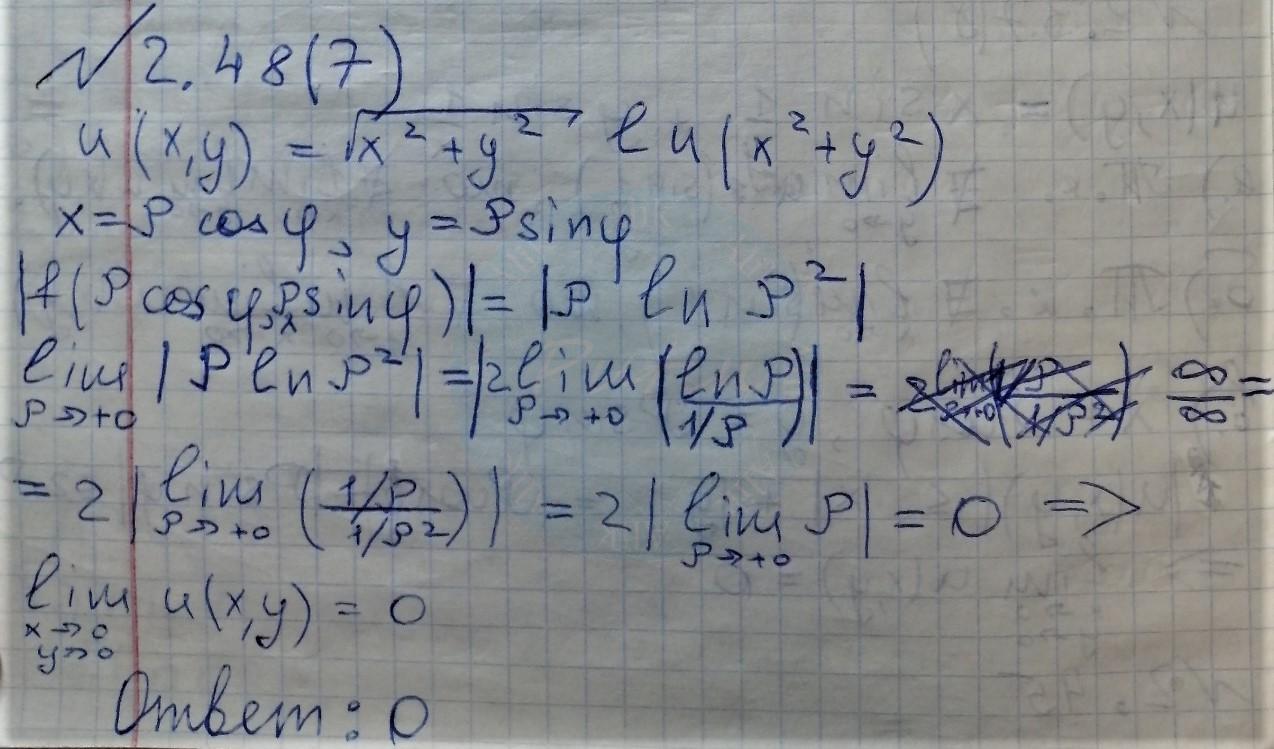 № 2.48(7)
u(x,y) = √(x²+y²) ln(x²+y²)
x=ρ cosφ, y=ρsinφ
|f(ρ cosφ, ρsinφ)| = |ρ ln ρ²|
lim ρ→+0 |ρ lnρ²| = |2 lim ρ→+0 (lnρ / 1/ρ)| = ∞/∞ =
= 2 | lim ρ→+0 (1/ρ / 1/ρ²) | = 2 | lim ρ→+0 ρ | = 0 =>
lim x→0 y→0 u(x,y) = 0
Ответ: 0